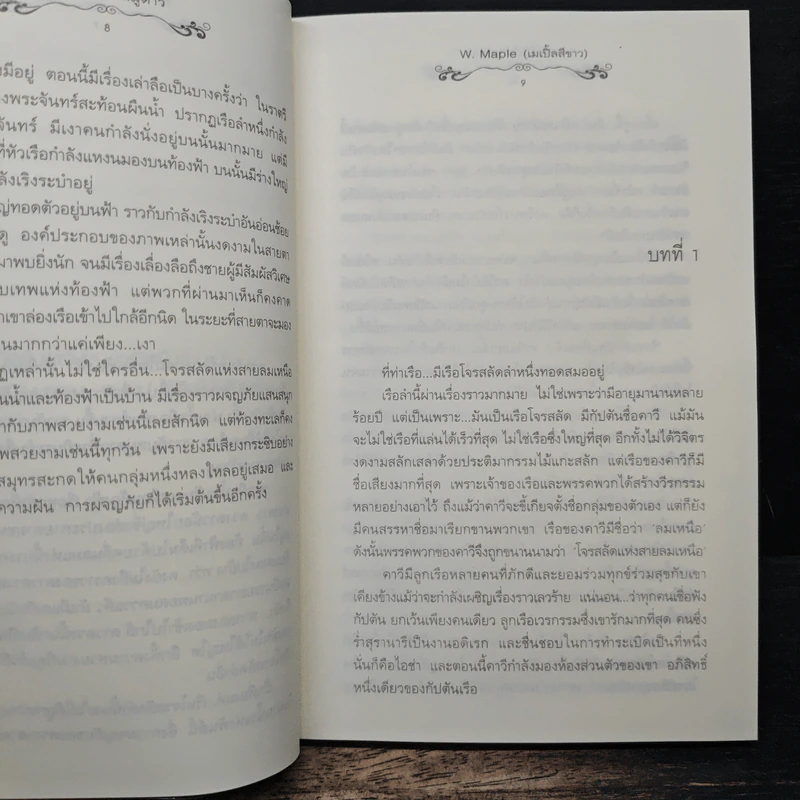 8
มีอยู่ ตอนนี้มีเรื่องเล่าลือเป็นบางครั้งว่า ในราตรี
พระจันทร์สะท้อนผืนน้ำ ปรากฏเรือลำหนึ่งกำลัง
จันทร์ มีเงาคนกำลังนั่งอยู่บนนั้นมากมาย แต่มี
ที่หัวเรือกำลังแหงนมองบนท้องฟ้า บนนั้นมีร่างใหญ่
ลังเริงระบำอยู่
ญ่ทอดตัวอยู่บนฟ้า ราวกับกำลังเริงระบำอันอ่อนช้อย
ดู องค์ประกอบของภาพเหล่านั้นงดงามในสายตา
มาพบยิ่งนัก จนมีเรื่องเลื่องลือถึงชายผู้มีสัมผัสวิเศษ
บเทพแห่งท้องฟ้า แต่พวกที่ผ่านมาเห็นก็คงคาด
าเขาล่องเรือเข้าไปใกล้อีกนิด ในระยะที่สายตาจะมอง
นมากกว่าแค่เพียง...เงา
ฏเหล่านั้นไม่ใช่ใครอื่น...โจรสลัดแห่งสายลมเหนือ
นน้ำและท้องฟ้าเป็นบ้าน มีเรื่องราวผจญภัยแสนสนุก
ากับภาพสวยงามเช่นนี้เลยสักนิด แต่ท้องทะเลก็คง
พสวยงามเช่นนี้ทุกวัน เพราะยังมีเสียงกระซิบอย่าง
สมุทรสะกดให้คนกลุ่มหนึ่งหลงใหลอยู่เสมอ และ
ความฝัน การผจญภัยก็ได้เริ่มต้นขึ้นอีกครั้ง
W. Maple (เมเปิ้ลสีขาว)
9
บทที่ 1
ที่ท่าเรือ...มีเรือโจรสลัดลำหนึ่งทอดสมออยู่
เรือลำนี้ผ่านเรื่องราวมากมาย ไม่ใช่เพราะว่ามีอายุมานานหลาย
ร้อยปี แต่เป็นเพราะ...มันเป็นเรือโจรสลัด มีกัปตันชื่อคาวี แม้มัน
จะไม่ใช่เรือที่แล่นได้เร็วที่สุด ไม่ใช่เรือซึ่งใหญ่ที่สุด อีกทั้งไม่ได้วิจิตร
งดงามสลักเสลาด้วยประติมากรรมไม้แกะสลัก แต่เรือของคาวีก็มี
ชื่อเสียงมากที่สุด เพราะเจ้าของเรือและพรรคพวกได้สร้างวีรกรรม
หลายอย่างเอาไว้ ถึงแม้ว่าคาวีจะขี้เกียจตั้งชื่อกลุ่มของตัวเอง แต่ก็ยัง
มีคนสรรหาชื่อมาเรียกขานพวกเขา เรือของคาวีมีชื่อว่า ‘ลมเหนือ’
ดังนั้นพรรคพวกของคาวีจึงถูกขนานนามว่า ‘โจรสลัดแห่งสายลมเหนือ’
คาวีมีลูกเรือหลายคนที่ภักดีและยอมร่วมทุกข์ร่วมสุขกับเขา
เคียงข้างแม้ว่าจะกำลังเผชิญเรื่องราวเลวร้าย แน่นอน...ว่าทุกคนเชื่อฟัง
กัปตัน ยกเว้นเพียงคนเดียว ลูกเรือเวรกรรมซึ่งเขารักมากที่สุด คนซึ่ง
ร่ำสุรานารีเป็นงานอดิเรก และชื่นชอบในการทำระเบิดเป็นที่หนึ่ง
นั่นก็คือไอซ่า และตอนนี้คาวีกำลังมองห้องส่วนตัวของเขา อภิสิทธิ์
หนึ่งเดียวของกัปตันเรือ